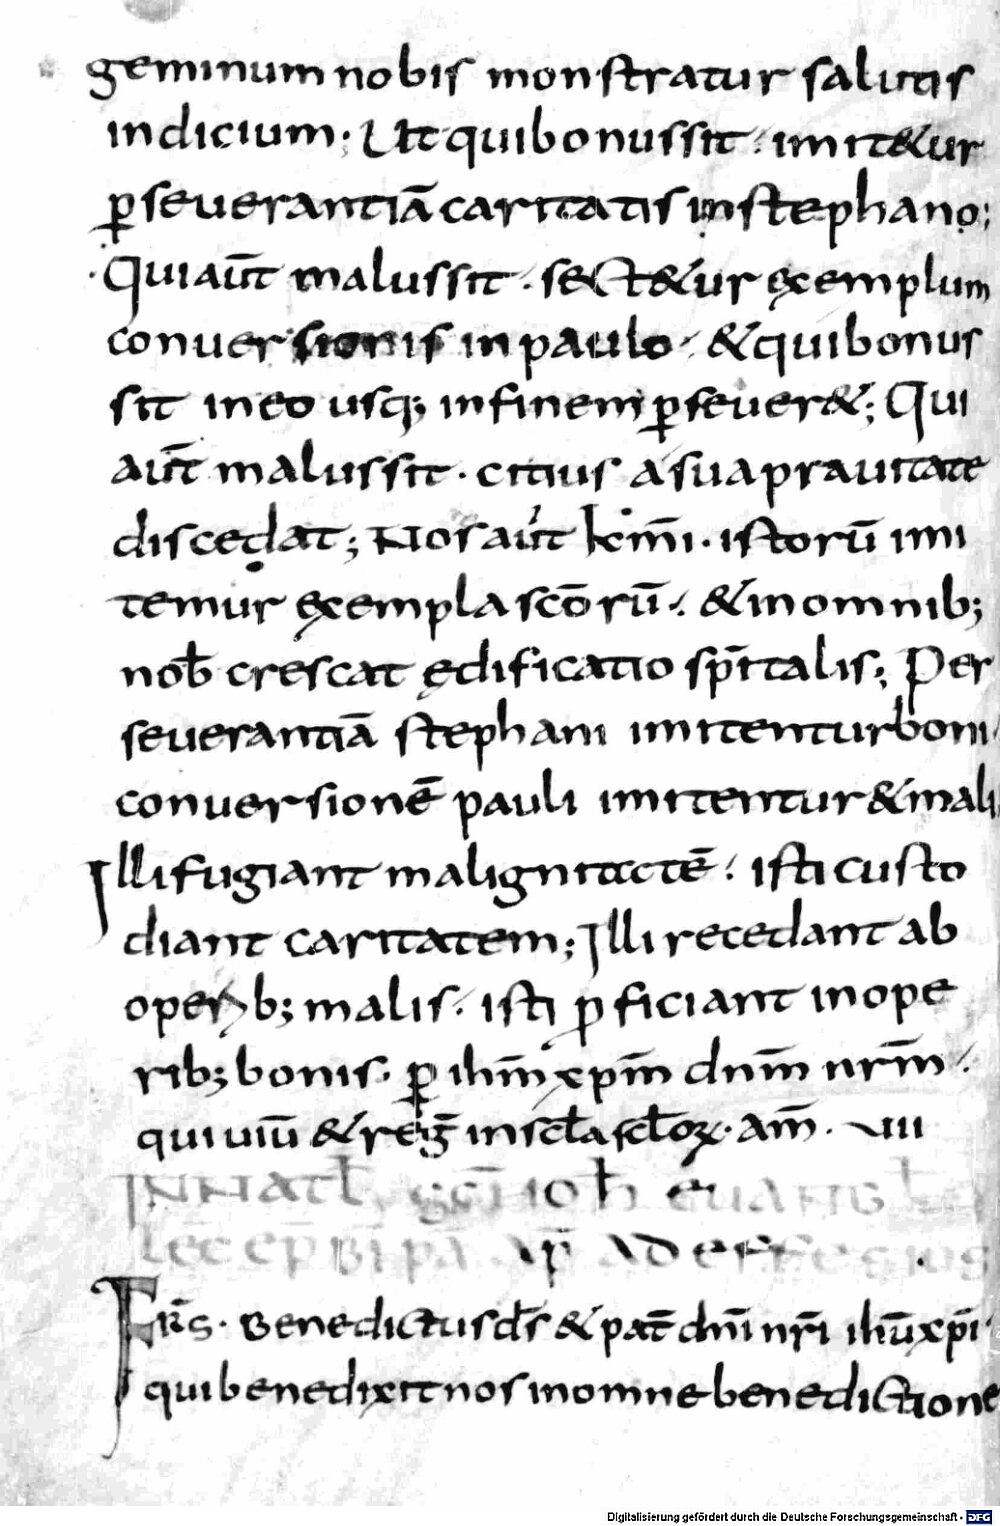 geminum nobis monstratur salutis
indicium; Ut qui bonus sit, imit&ur
p̱seuerantiā caritatis in stephano;
Qui aūt malus sit, sect&ur exemplum
conuersionis in paulo, & qui bonus
sit in eo usq; in finem p̱seuer&; Qui
aūt malus sit, citius a sua prauitate
discedat; Nos aūt km̄i. istorū imi
temur exempla scōrū, & in omnib;
nob̄ crescat ędificatio sp̄italis; Per
seuerantiā stephani imitentur boni
conuersionē pauli imitentur & mali
Illi fugiant malignitatē, isti custo
diant caritatem; Illi recedant ab
operib; malis, isti p̱ficiant in ope
rib; bonis. p̱ ihm̄ xpm̄ dnm̄ nrm̄,
qui uiū & reḡ in scl̄a scl̄oꝝ. am̄. VIII
IN NATL̄ SCĪ IOH̄ EUANG
LEC EP̄ BĪ PA AP̄ AD EFFESIUS
Fr̄s. Benedictus ds̄ & pat̄ dn̄i nr̄i ihū xp̄i
qui benedixit nos in omne benedictione
Digitalisierung gefördert durch die Deutsche Forschungsgemeinschaft - DFG